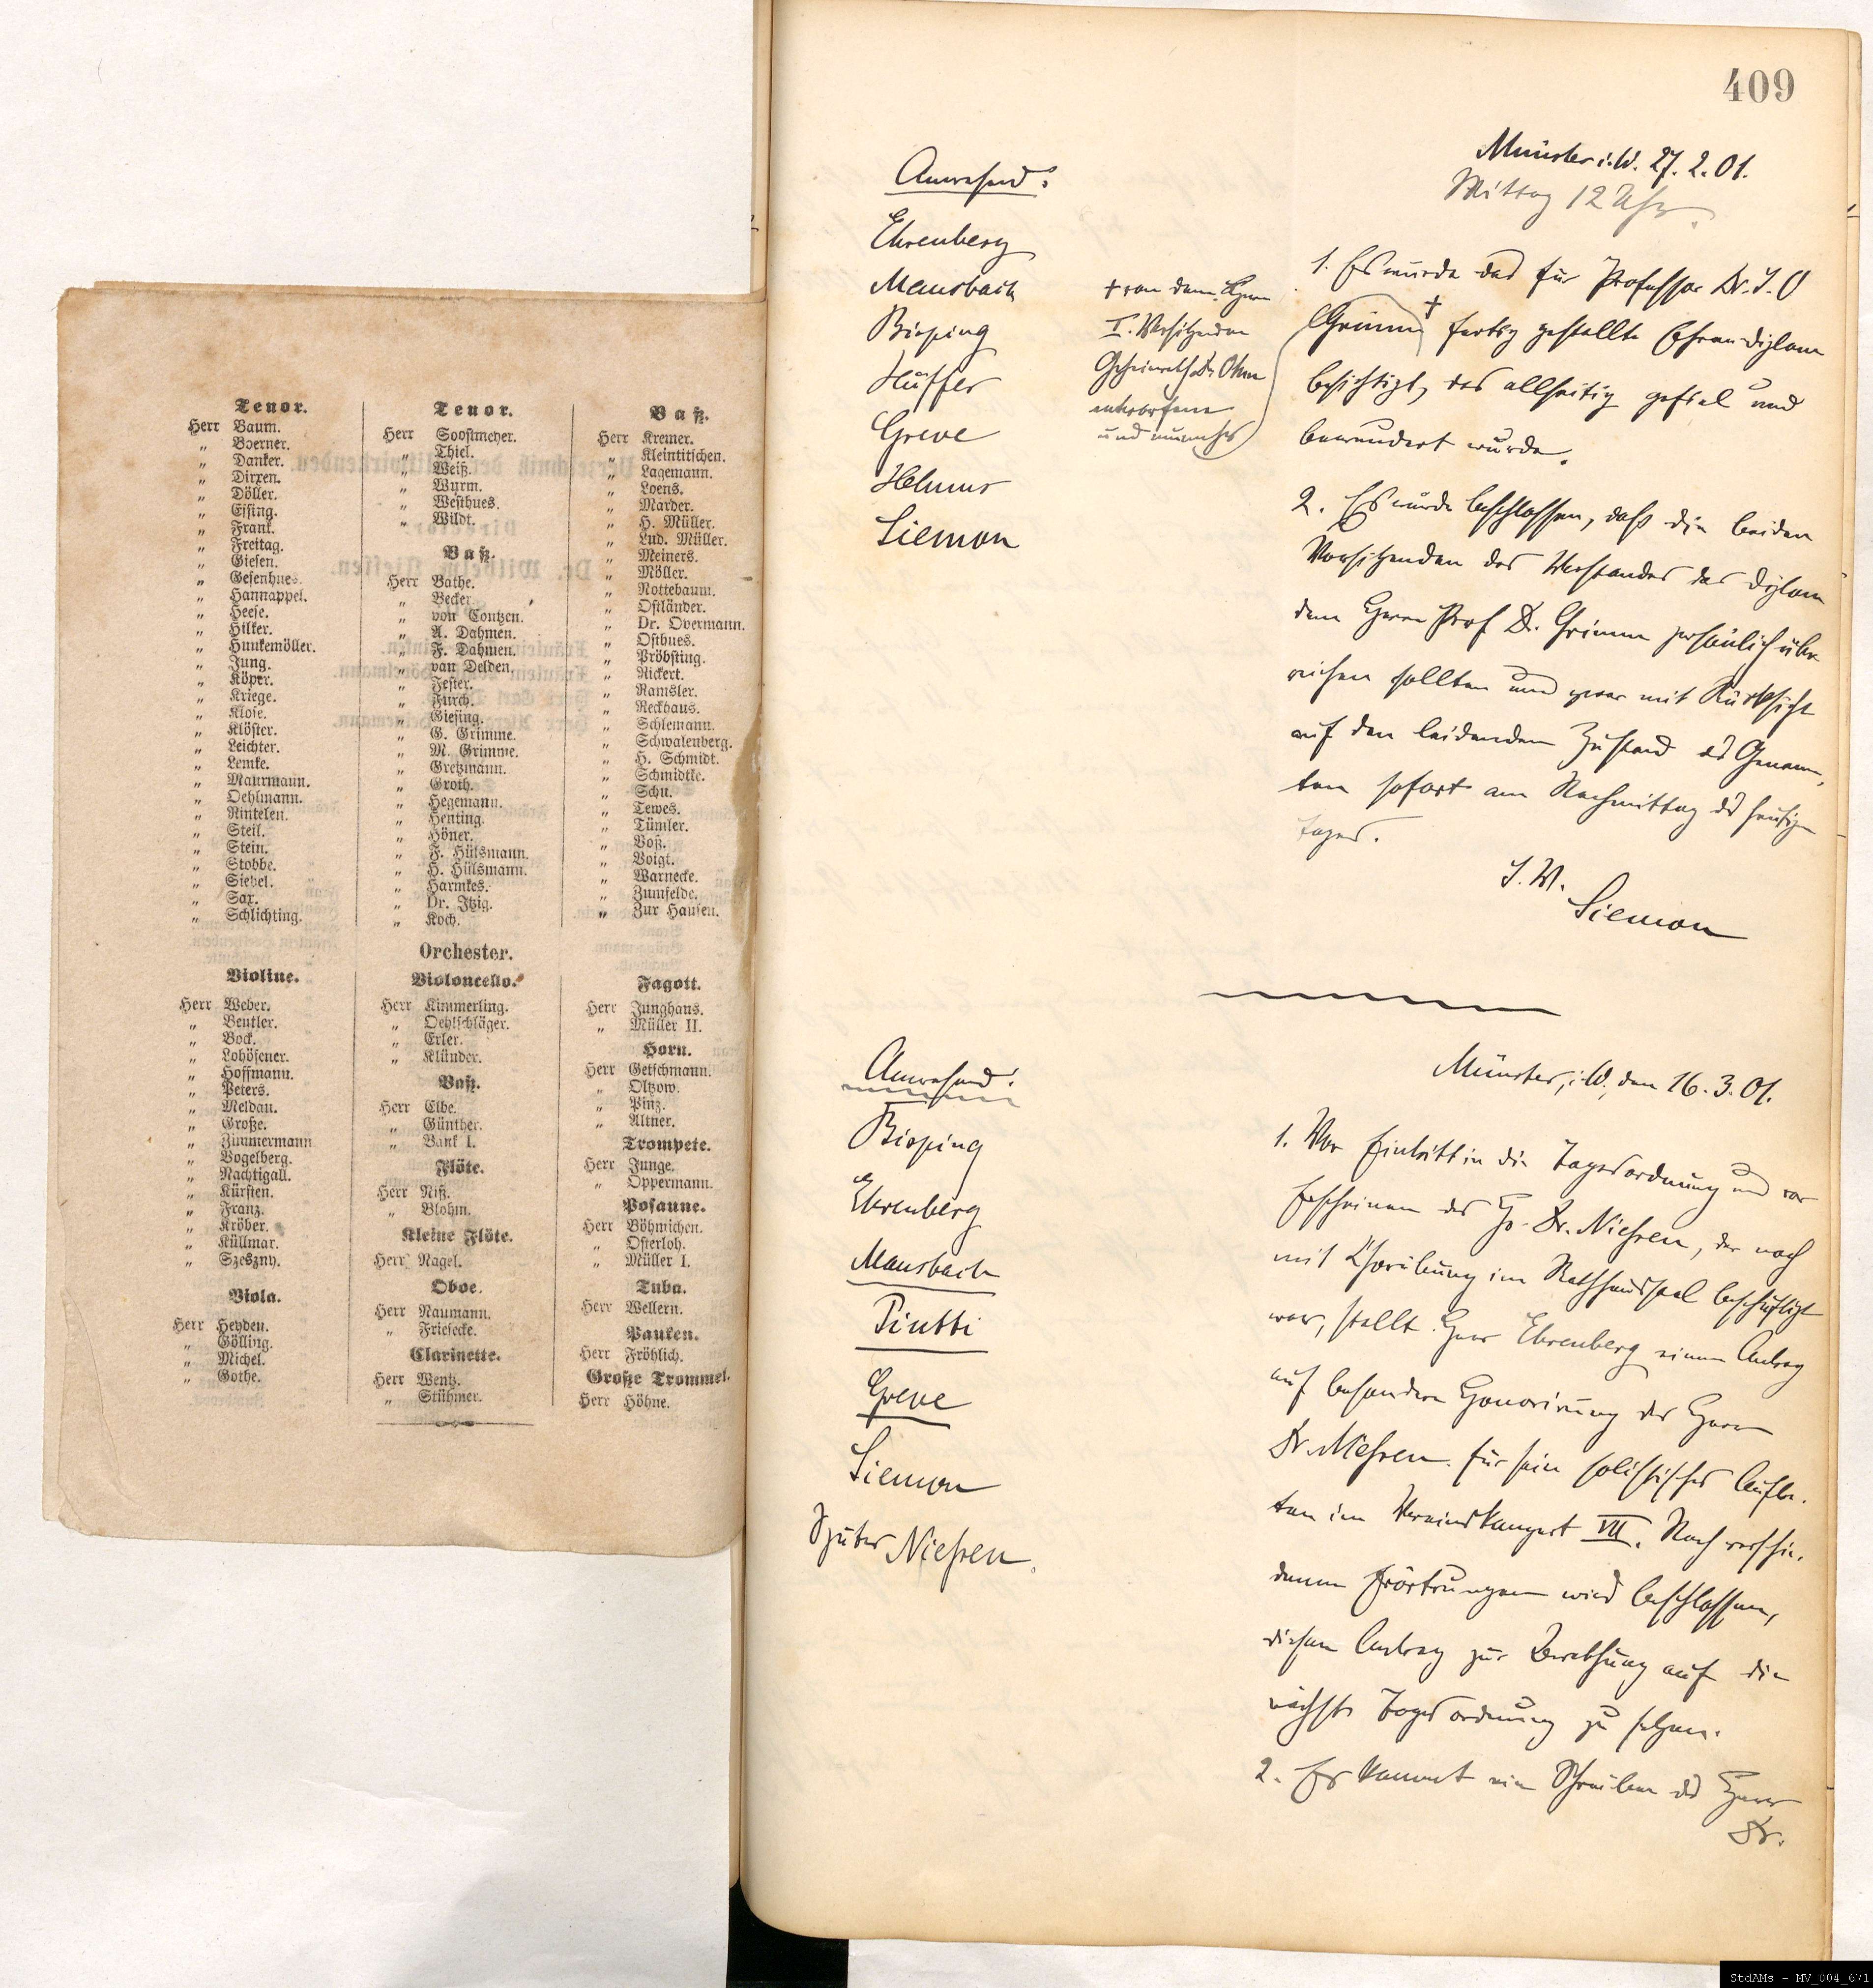 Tenor.
Herr Baum.
„ Boerner.
„ Danker.
„ Dirxen.
„ Döller.
„ Essing.
„ Frank.
„ Freitag.
„ Giesen.
„ Gesenhues.
„ Hannappel.
„ Heese.
„ Hilker.
„ Hunkemöller.
„ Jung.
„ Köper.
„ Kriege.
„ Klose.
„ Klöster.
„ Leichter.
„ Lemke.
„ Maurmann.
„ Oehlmann.
„ Rintelen.
„ Steil.
„ Stein.
„ Stobbe.
„ Siebel.
„ Sax.
„ Schlichting.
Tenor.
Herr Soostmeyer.
„ Thiel.
„ Weiß.
„ Wurm.
„ Westhues.
„ Wildt.
Baß.
Herr Bathe.
„ Becker.
„ von Contzen.
„ A. Dahmen.
„ F. Dahmen.
„ van Delden.
„ Fester.
„ Furch.
„ Giesing.
„ G. Grimme.
„ M. Grimme.
„ Gretzmann.
„ Groth.
„ Hegemann.
„ Henting.
„ Höner.
„ F. Hülsmann.
„ H. Hülsmann.
„ Harmkes.
„ Dr. Itzig.
„ Koch.
Baß.
Herr Kremer.
„ Kleintitschen.
„ Lagemann.
„ Loens.
„ Marder.
„ H. Müller.
„ Lud. Müller.
„ Meiners.
„ Möller.
„ Nottebaum.
„ Ostländer.
„ Dr. Overmann.
„ Osthues.
„ Pröbsting.
„ Rickert.
„ Ramsler.
„ Reckhaus.
„ Schlemann.
„ Schwalenberg.
„ H. Schmidt.
„ Schmidtke.
„ Schu.
„ Tewes.
„ Tümler.
„ Voß.
„ Voigt.
„ Warnecke.
„ Zumfelde.
„ Zur Hausen.
Orchester.
Violine.
Herr Weber.
„ Beutler.
„ Bock.
„ Lohöfener.
„ Hoffmann.
„ Peters.
„ Meldau.
„ Große.
„ Zimmermann
„ Vogelberg.
„ Nachtigall.
„ Kürsten.
„ Franz.
„ Kröber.
„ Küllmar.
„ Szeszny.
Viola.
Herr Heyden.
„ Gölling.
„ Michel.
„ Gothe.
Violoncello.
Herr Kimmerling.
„ Oehlschläger.
„ Erler.
„ Klünder.
Baß.
Herr Elbe.
„ Günther.
„ Bank I.
Flöte.
Herr Niß.
„ Blohm.
Kleine Flöte.
Herr Nagel.
Oboe.
Herr Naumann.
„ Friesecke.
Clarinette.
Herr Wentz.
„ Stühmer.
Fagott.
Herr Junghans.
„ Müller II.
Horn.
Herr Getschmann.
„ Oltzow.
„ Pinz.
„ Altner.
Trompete.
Herr Junge.
„ Oppermann.
Posaune.
Herr Böhmichen.
„ Osterloh.
„ Müller I.
Tuba.
Herr Wellern.
Pauken.
Herr Fröhlich.
Große Trommel.
Herr Höhne.
409
Münster i. W. 27. 2. 01.
Mittag 12 Uhr.
Anwesend:
Ehrenberg
Mausbach
Bisping
Hüffer
Greve
Helmus
Siemon
+ von dem Herrn
I. Vorsitzenden
Geheimrath Dr. Ohm
entworfene
und nunmehr
1. Es wurde das für Professor Dr. J. O
Grimm + fertig gestellte Ehrendiplom
besichtigt, das allseitig gefiel und
bewundert wurde.
2. Es wurde beschlossen, daß die beiden
Vorsitzenden des Vorstandes das Diplom
dem Herrn Prof Dr. Grimm persönlich über
reichen sollten und zwar mit Rücksicht
auf den leidenden Zustand des Genann
ten sofort am Nachmittag des heutigen
Tages.
J. W.
Siemon
Münster, i. W., den 16. 3. 01.
Anwesend:
Bisping
Ehrenberg
Mausbach
Piutti
Greve
Siemon
Später Nießen.
1. Vor Eintritt in die Tagesordnung und vor
Erscheinen des H. Dr. Nießen, der noch
mit Chorübung im Rathhaussaal beschäftigt
war, stellt Herr Ehrenberg einen Antrag
auf besondere Honorirung des Herrn
Dr. Nießen für sein solistisches Auftre-
ten im Vereinskonzert VII. Nach verschie-
denen Erörtrungen wird beschlossen,
diesen Antrag zur Berathung auf die
nächste Tagesordnung zu setzen.
2. Es kommt ein Schreiben des Herrn
Dr.
StdAMs - MV_004_671